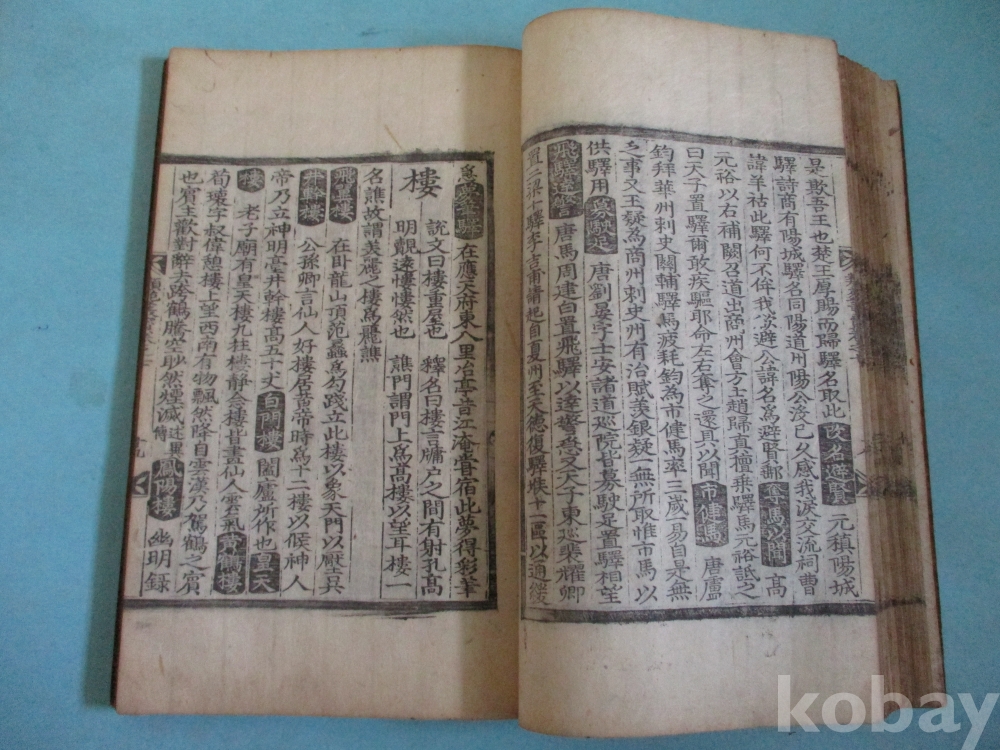 是欺吾王也楚王厚賜而歸驛名取此 改名避賢 元稹陽城
驛詩商有陽城驛名同陽道州陽公沒已久感我淚交流祠曹
諱羊祜此驛何不侔我欲避公諱名爲避賢郵 奪馬以聞 高
元裕以右補闕召道出商州會方士趙歸真擅乘驛馬元裕詆之
曰天子置驛爾敢疾驅耶命左右奪之還具以聞 市健馬 唐盧
鈞拜華州刺史關輔驛馬疲耗鈞為市健馬率三歲一易自是無
乏事又王疑為商州刺史州有治賦羨銀疑一無所取惟市馬以
供驛用 募駛足 唐劉晏字士安諸道巡院皆募駛足置驛相望
飛驛達警 唐馬周建白置飛驛以達警急又天子東巡張耀卿
置三梁十驛李吉甫請起自夏州至天德復驛堠十一區以通緩
急 夢筆驛 在應天府東八里冶亭昔江淹嘗宿此夢得彩筆
樓 說文曰樓重屋也 釋名曰樓言牖户之間有射孔髙
明觀遠慺慺然也 譙門謂門上爲髙樓以望耳樓一
名譙故謂美麗之樓爲麗譙
飛翼樓 在卧龍山頂范蠡爲勾踐立此樓以象天門以厭立具
井幹樓 公孫卿言仙人好樓居黃帝時爲十二樓以候神人
帝乃立神明臺井幹樓高五十丈 白門樓 闔廬所作也 皇天
樓 老子廟有皇天樓九柱樓靜念樓皆畫仙人雲氣 黃鶴樓
荀瓌字叔偉憩樓上望西南有物飄然降自雲漢乃駕鶴之賓
也賓主歡對辭去跨鶴騰空眇然煙滅 述異傳 鳳陽樓 幽明録
kobay